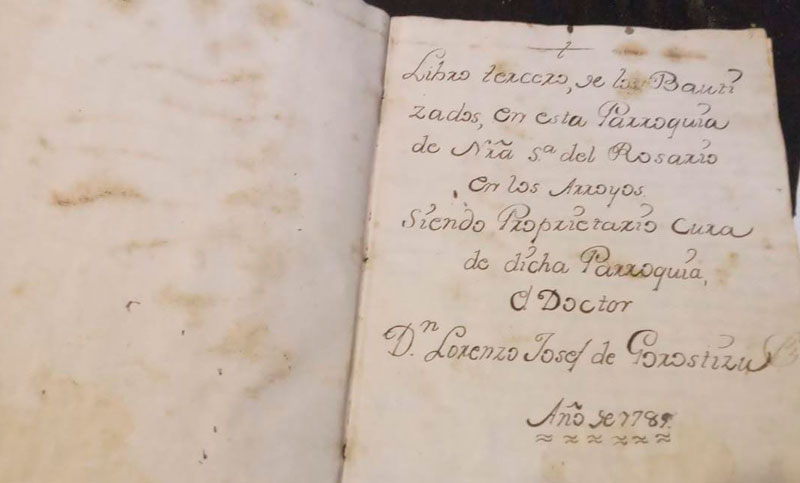 Libro tercero, de los Bauti
zados, en esta Parroquia
de Nrã Sª del Rosario
en los Arroyos.
Siendo Proprietario Cura
de dicha Parroquia,
el Doctor
D.ⁿ Lorenzo Josef de Gorostizu
Año de